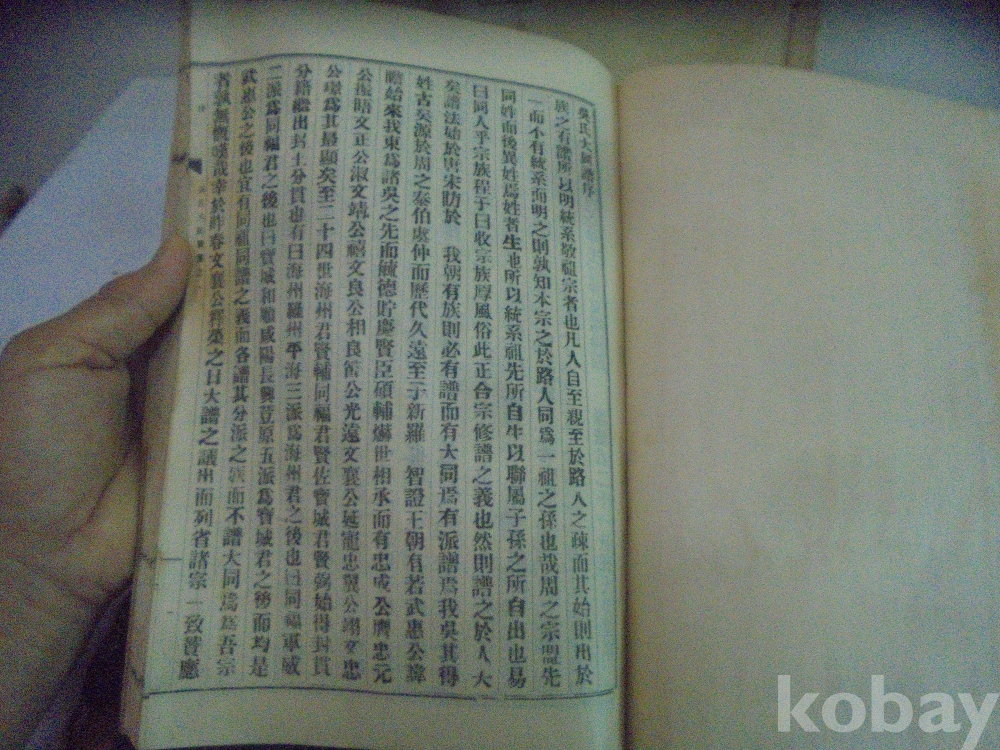 吳氏大同譜序
族之有譜所以明統系敬祖宗者也凡人自至親至於路人之疎而其始則出於
一而不有統系而明之則孰知本宗之於路人同爲一祖之孫也哉周之宗盟先
同姓而後異姓爲姓者生也所以統系祖先所自生以聯屬子孫之所自出也易
曰同人乎宗族程子曰收宗族厚風俗此正合宗修譜之義也然則譜之於人大
矣譜法始於唐宋昉於 我朝有族則必有譜而有大同焉有派譜焉我吳其得
姓古矣源於周之泰伯虞仲而歷代久遠至于新羅 智證王朝有若武惠公諱
瞻始來我東爲諸吳之先而毓德貯慶賢臣碩輔爀世相承而有忠成公膺忠元
公振晤文正公淑文靖公禧文良公相良節公光遠文襄公延寵忠翼公翊文忠
公璟爲其最顯矣至二十四世海州君賢輔同福君賢佐寶城君賢弼始得封貫
分籍繼出封土分貫也有曰海州羅州平海三派爲海州君之後也曰同福軍威
二派爲同福君之後也曰寶城和順咸陽長興荳原五派爲寶城君之後而均是
武惠公之後也宜有同祖同譜之義而各譜其分派之族而不譜大同焉爲吾宗
者孰無慨嘆哉幸於昨春文襄公釋榮之日大譜之議出而列省諸宗一致賛應
序
kobay